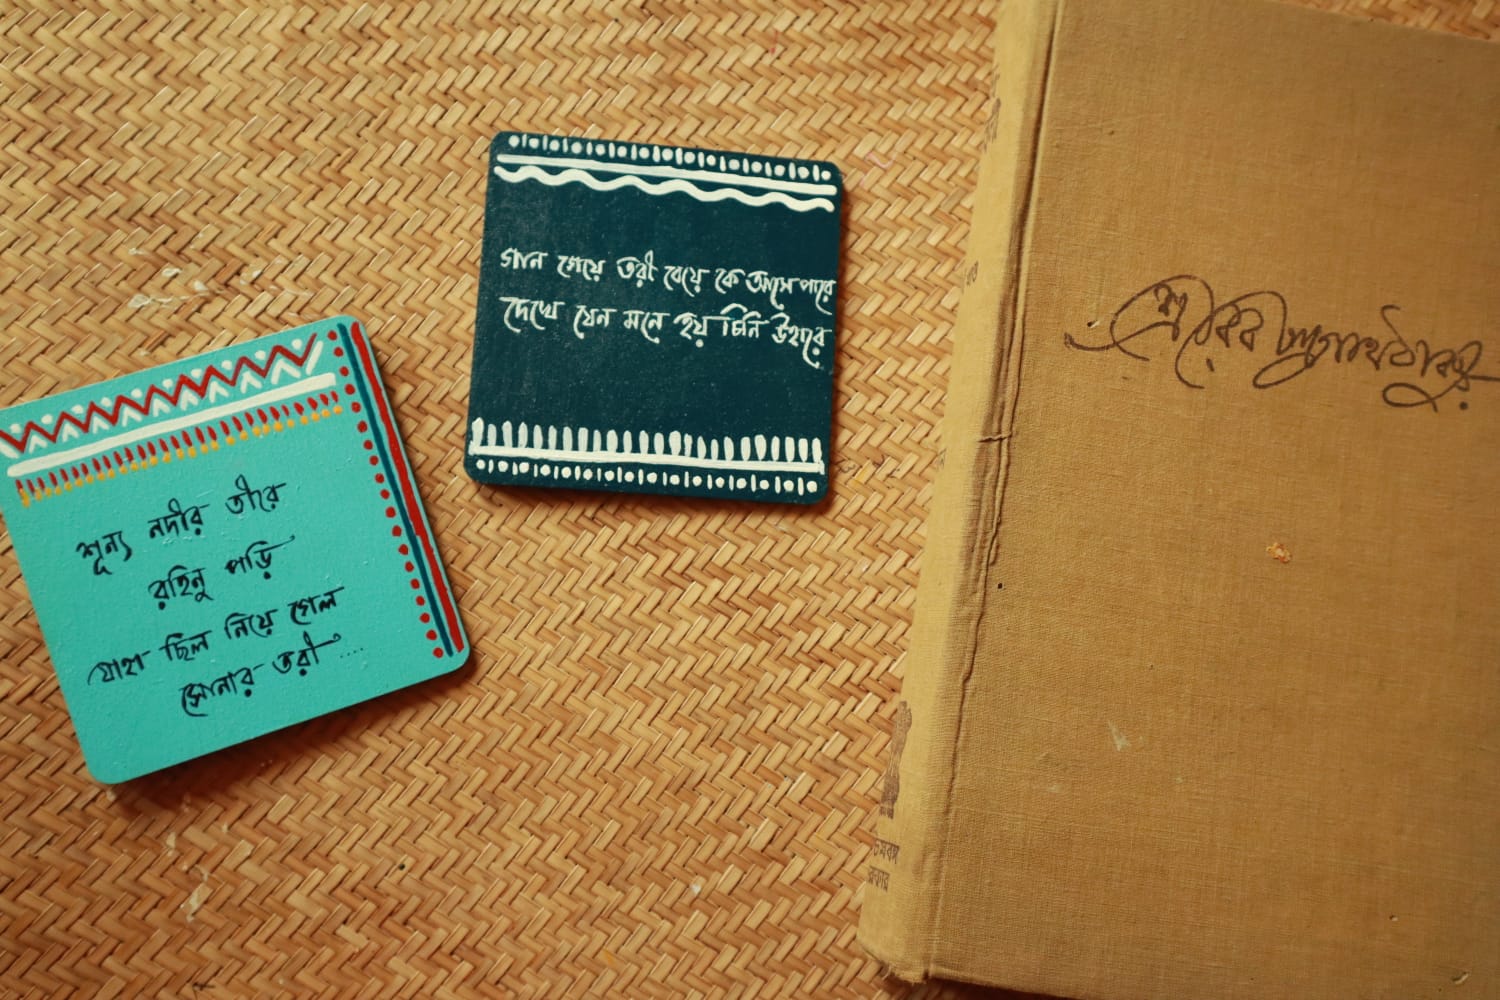 শূন্য নদীর তীরে
রহিনু পড়ি
যাহা ছিল নিয়ে গেল
সোনার তরী ....
গান গেয়ে তরী বেয়ে কে আসে পারে
দেখে যেন মনে হয় চিনি উহারে
শ্রীরবীন্দ্রনাথ ঠাকুর